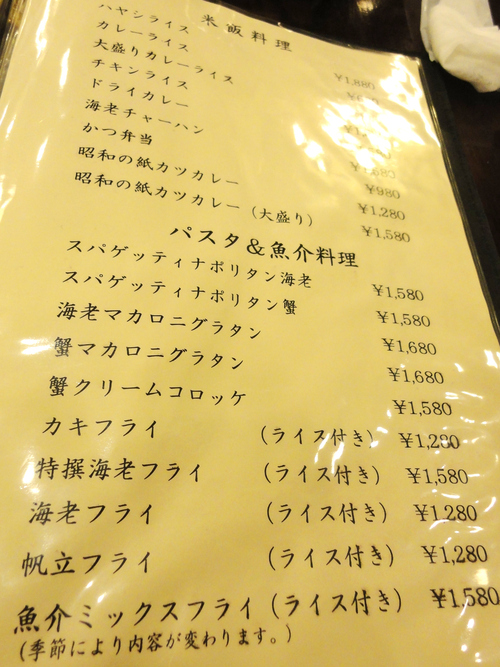 米飯料理
ハヤシライス
カレーライス ¥1,880
大盛りカレーライス
チキンライス
ドライカレー
海老チャーハン
かつ弁当 ¥980
昭和の紙カツカレー ¥1,280
昭和の紙カツカレー (大盛り) ¥1,580
パスタ&魚介料理
スパゲッティナポリタン海老 ¥1,580
スパゲッティナポリタン蟹 ¥1,580
海老マカロニグラタン ¥1,680
蟹マカロニグラタン ¥1,680
蟹クリームコロッケ ¥1,580
カキフライ (ライス付き) ¥1,280
特撰海老フライ (ライス付き) ¥1,580
海老フライ (ライス付き) ¥1,280
帆立フライ (ライス付き) ¥1,280
魚介ミックスフライ (ライス付き) ¥1,580
(季節により内容が変わります。)